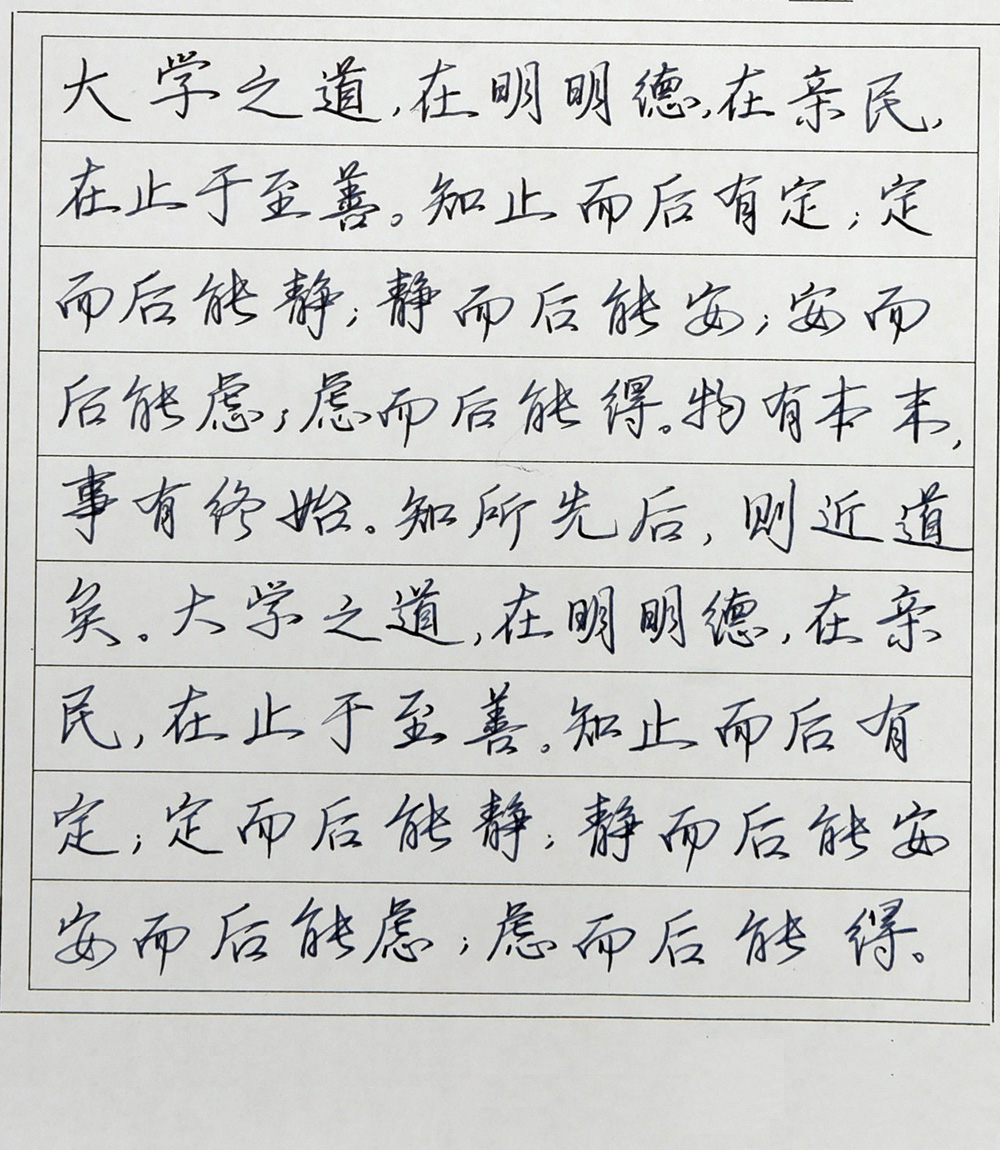 大学之道,在明明德,在亲民,
在止于至善。知止而后有定;定
而后能静;静而后能安;安而
后能虑;虑而后能得。物有本末,
事有终始。知所先后,则近道
矣。大学之道,在明明德,在亲
民,在止于至善。知止而后有
定;定而后能静;静而后能安
安而后能虑;虑而后能得。